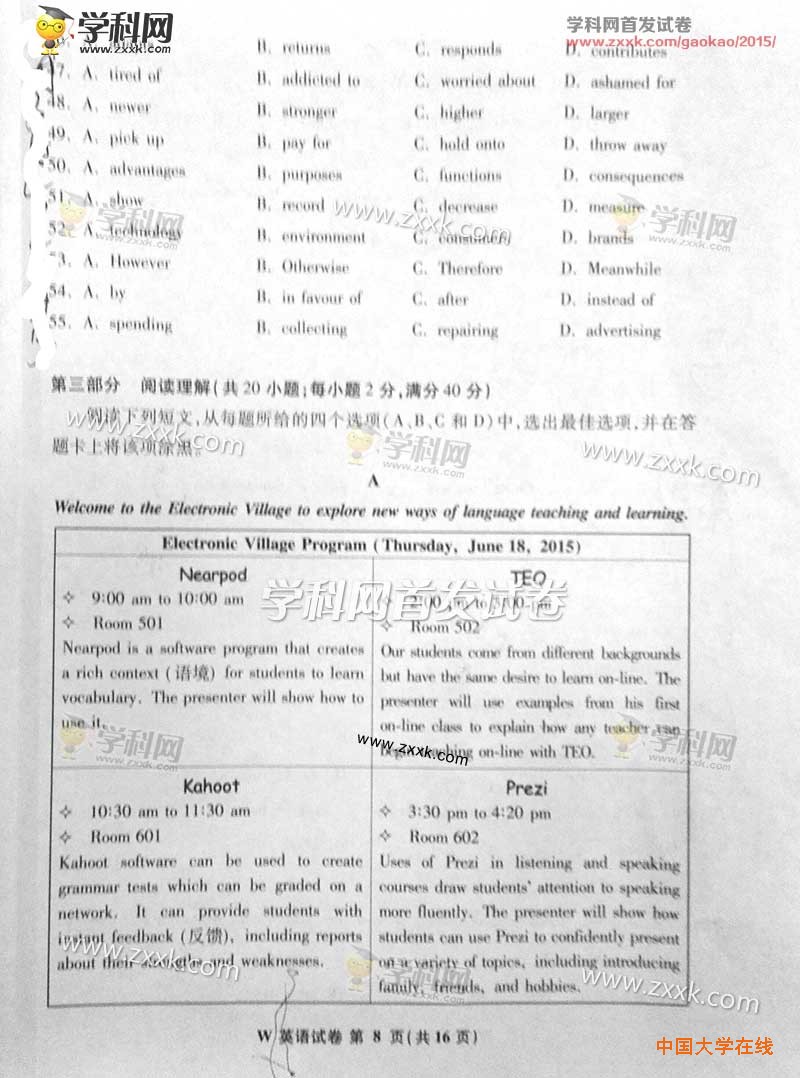 学科网
学科网首发试卷
www.zxxk.com/gaokao/2015/
B. returns C. responds D. contributes
47. A. tired of B. addicted to C. worried about D. ashamed for
48. A. newer B. stronger C. higher D. larger
49. A. pick up B. pay for C. hold onto D. throw away
50. A. advantages B. purposes C. functions D. consequences
51. A. show B. record C. decrease D. measure
52. A. technology B. environment C. D. brands
53. A. However B. Otherwise C. Therefore D. Meanwhile
54. A. by B. in favour of C. after D. instead of
55. A. spending B. collecting C. repairing D. advertising
第三部分 阅读理解(共20小题;每小题2分,满分40分)
阅读下列短文,从每题所给的四个选项(A、B、C和D)中,选出最佳选项,并在答
题卡上将该项涂黑。
A
Welcome to the Electronic Village to explore new ways of language teaching and learning.
Electronic Village Program (Thursday, June 18, 2015)
Nearpod
✧ 9:00 am to 10:00 am
✧ Room 501
Nearpod is a software program that creates
a rich context (语境) for students to learn
vocabulary. The presenter will show how to
use it.
TEO
✧ pm to pm
✧ Room 502
Our students come from different backgrounds
but have the same desire to learn on-line. The
presenter will use examples from his first
on-line class to explain how any teacher can
on-line with TEO.
Kahoot
✧ 10:30 am to 11:30 am
✧ Room 601
Kahoot software can be used to create
grammar tests which can be graded on a
network. It can provide students with
instant feedback (反馈), including reports
about their strengths and weaknesses.
Prezi
✧ 3:30 pm to 4:20 pm
✧ Room 602
Uses of Prezi in listening and speaking
courses draw students' attention to speaking
more fluently. The presenter will show how
students can use Prezi to confidently present
on a variety of topics, including introducing
family, friends, and hobbies.
W 英语试卷 第 8 页(共16页)
中国大学在线
学科网
www.zxxk.com
学科网
www.zxxk.com
学科网
www.zxxk.com
学科网首发试卷
学科网
www.zxxk.com
学科网
www.zxxk.com
学科网
www.zxxk.com